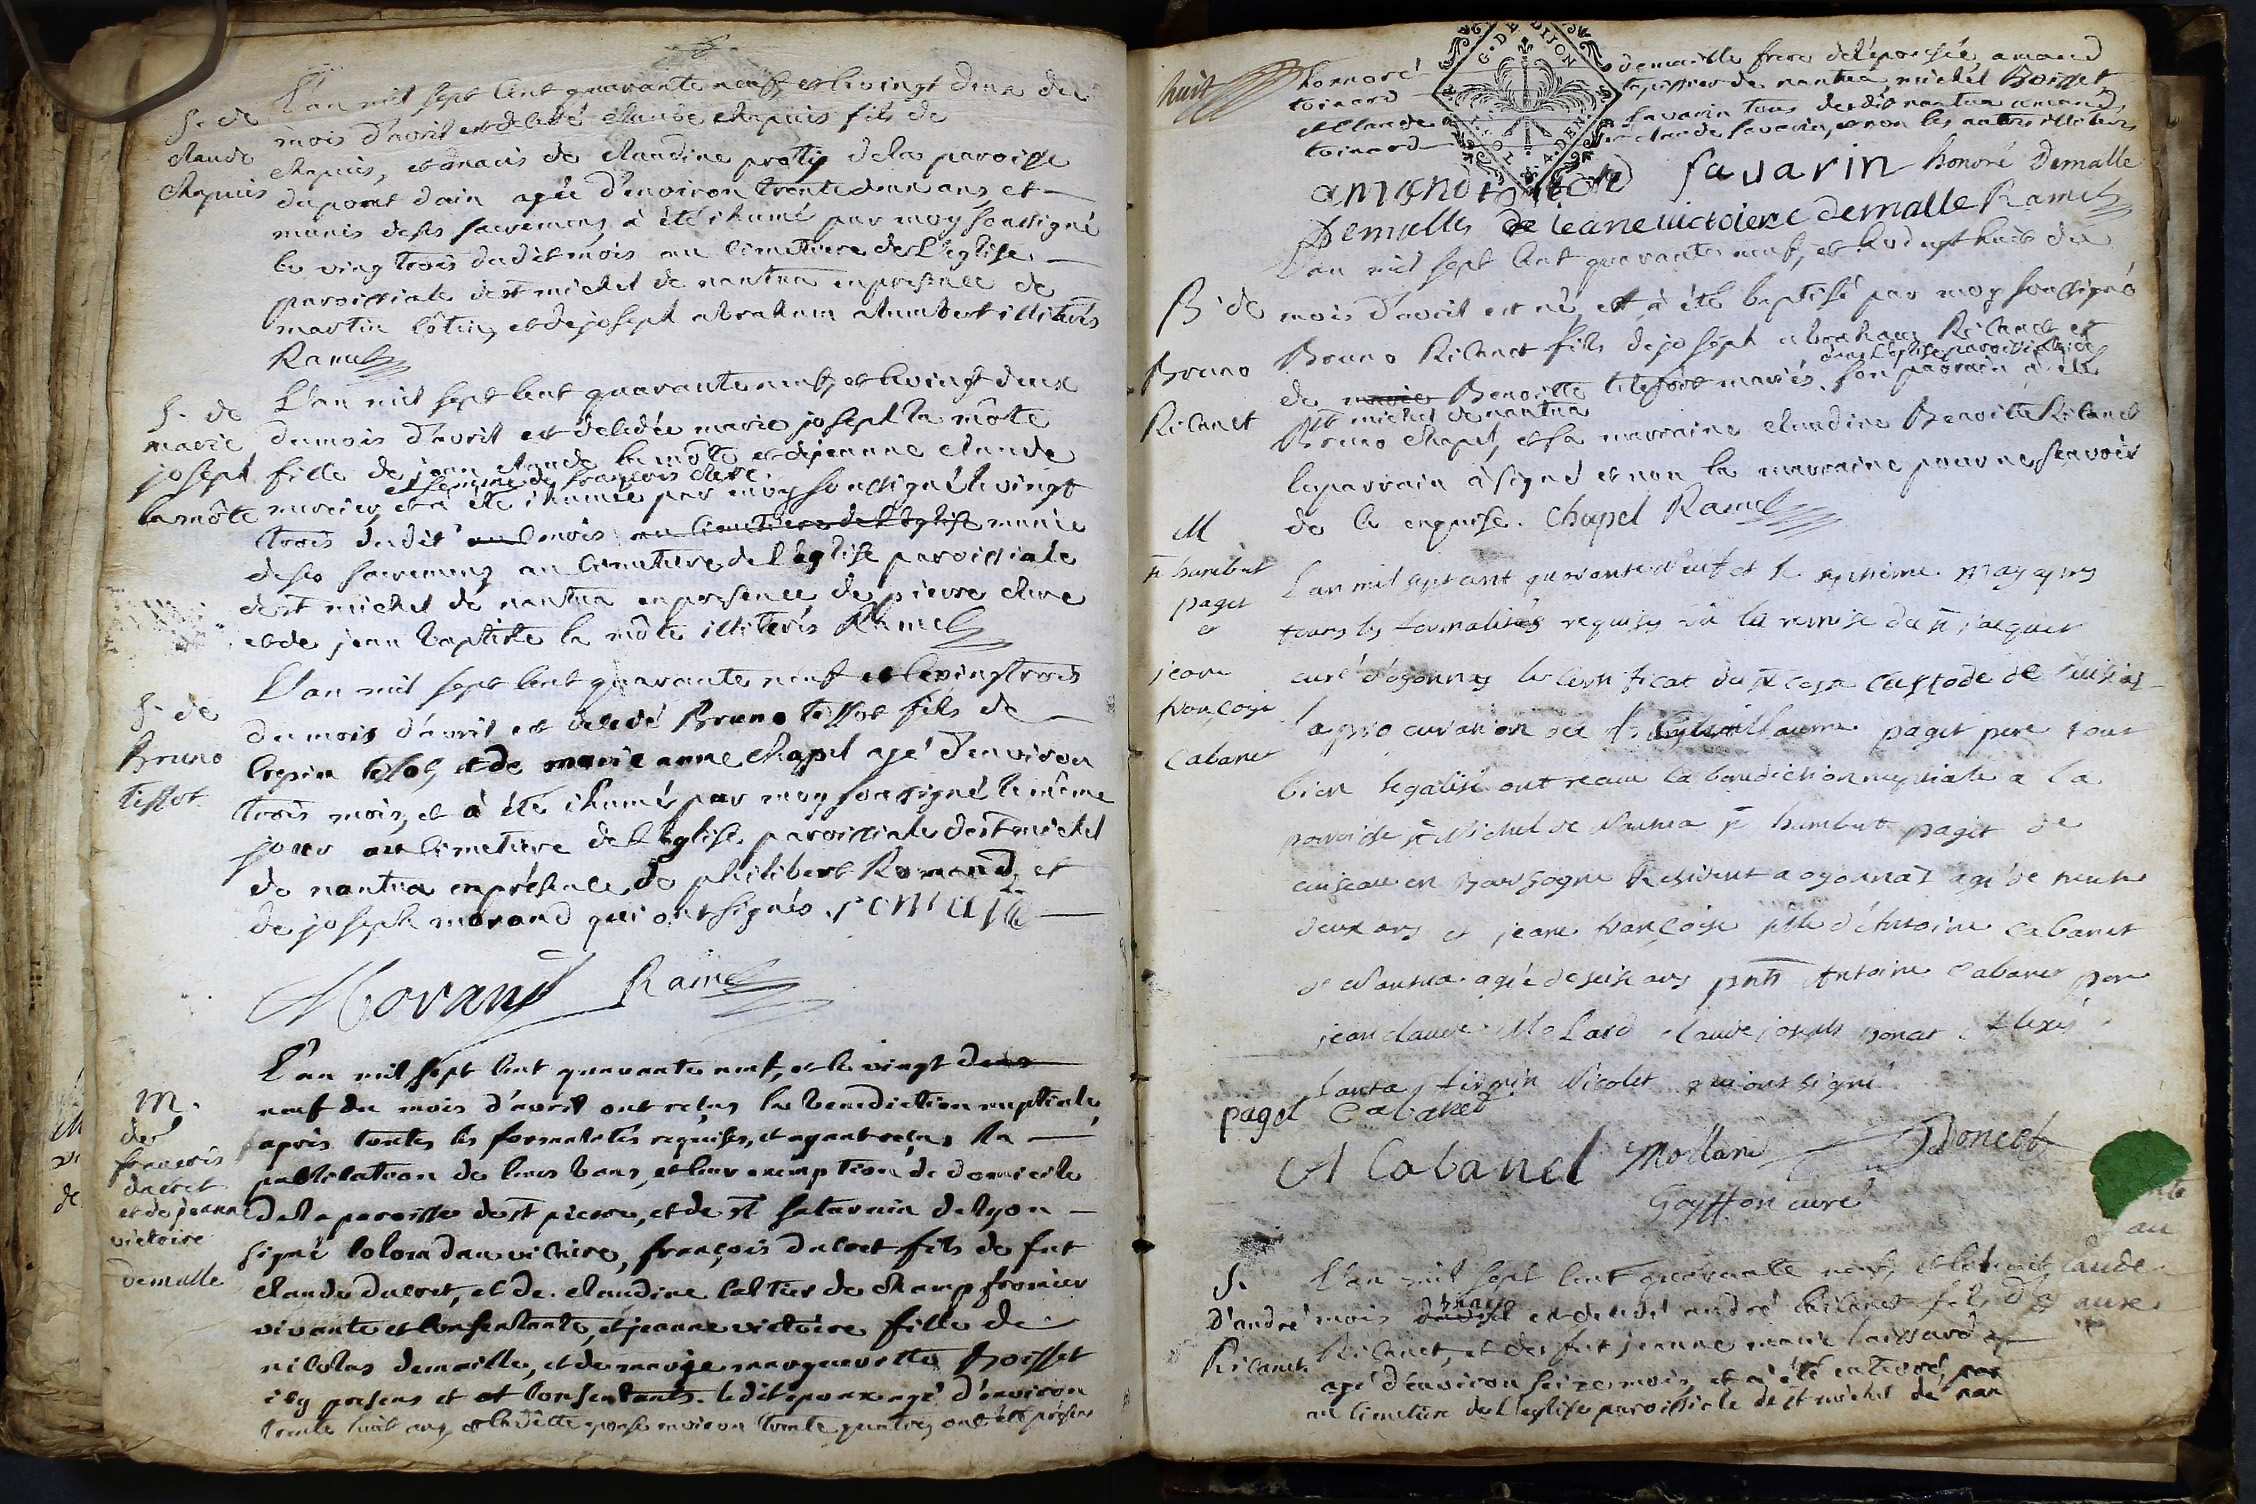 S. de
claude
chapuis
L'an mil sept cent quarante neuf, et le vingt deux du
mois d'avril est décédé claude chapuis fils de
chapuis, et maris de claudine protis de la paroisse
du pont d'ain agée d'environ trente deux ans, et
munis de ses sacremens, à été ihumé par moy soussigné
le vingtrois dudit mois au cimetiere de L'eglise
paroissiale de st michel de nantua en presence de
martin côtin, et de joseph abraham humbert illiterés
Ramel
S. de
marie
joseph
la môte
L'an mil sept cent quarante neuf, et le vingt deux
du mois d'avril est décédée marie joseph la môte
fille de jean claude la môte et de jeanne claude
et femme de françois cleve
mercier, et à été ihumée par moy soussigné le vingt
trois dudit mois au cimetiere de l'église munie
de ses sacremens au cimetiere de l'église paroissiale
de st michel de nantua en presence de pierre cleve
et de jean baptiste la môte illiterés Ramel
S. de
Bruno
tissot
L'an mil sept cent quarante neuf et le vingtrois
du mois d'avril est décédé Bruno tissot fils de
crepin tissot, et de marie anne chapel agé d'environ
trois mois, et à été ihumé par moy soussigné le même
jour au cimetiere de l'église paroissiale de st michel
de nantua en présence de philibert Romand, et
de joseph morand qui ont signés. romand
Morand Ramel
m.
de
françois
ducret
et de jeanne
victoire
demalle
L'an mil sept cent quarante neuf, et le vingt deux
neuf du mois d'avril ont reçus la benediction nuptiale,
après toutes les formalités requises, et ayant reçus la
publication de leurs bans, et leur exemption de domicile
de la paroisse de st pierre, et de st saturnin de lyon
signé colom dan vicaire, françois ducret fils de fut
claude ducret, et de claudine caltier de champfromier
vivante et consentante, et jeanne victoire fille de
nicolas demaille, et de marie marguerette Boisset
icy presens et consentants. ledit epoux agé d'environ
trente huit ans, et laditte epouse environ trente quatre, ont été présens
huit
honnoré demaille frere de l'épousée, amand
toinard tapissier de nantua, michel Boisset,
et claude savarin tous dudit nantua amand
toinard claude savarin, et non les autres illiterés
amand toinard savarin honoré Demalle
Demalles de jeane victoiere demalle Ramel
B. de
Bruno
Rilanet
L'an mil sept cent quarante neuf, et le vingt huit du
mois d'avril est né, et à été baptisé par moy soussigné
Bruno Rilanet fils de joseph abraham Rilanet et
dans l'église paroissiale de
de marie Benoitte tissot mariés. son parrain à été
st michel de nantua
Bruno chapel, et sa marraine claudine Benoitte Rilanet
le parrain à signé et non la marraine pour ne sçavoir
de ce enquise. Chapel Ramel
M
sr humbert
paget
et
jeane
françoise
Cabanet
L'an mil sept cent quarante neuf et le septieme may apres
toutes les formalités requises vû la remise du sr jacquet
curé d'oyonnax le certificat du sr custode de
la procuration de sr Guillaume paget pere tout
bien legalisé ont receu la benediction nuptiale a la
paroisse st Michel de Nantua sr humbert paget de
cuiseau en Bourgogne Resident a oyonnax agé de trente
deux ans et jeane françoise fille d'Antoine Cabanet
de Nantua agée de seise ans pnts Antoine Cabanet pere
jean claude Molard claude joseph Alexis
firmin Nicolet qui ont signé
paget Cabanet
A Cabanel Mollard Joncet
Goyffon curé
S.
D'andré
Rilanet
L'an mil sept cent quarante neuf, et
mois may est décédé andré Rilanet fils de
Rilanet, et de fut jeanne marie
agé d'environ seize mois, et à été enterré par
au cimetiere de l'eglise paroissiale de st michel de nan
au
Laude
G. DE DIJON